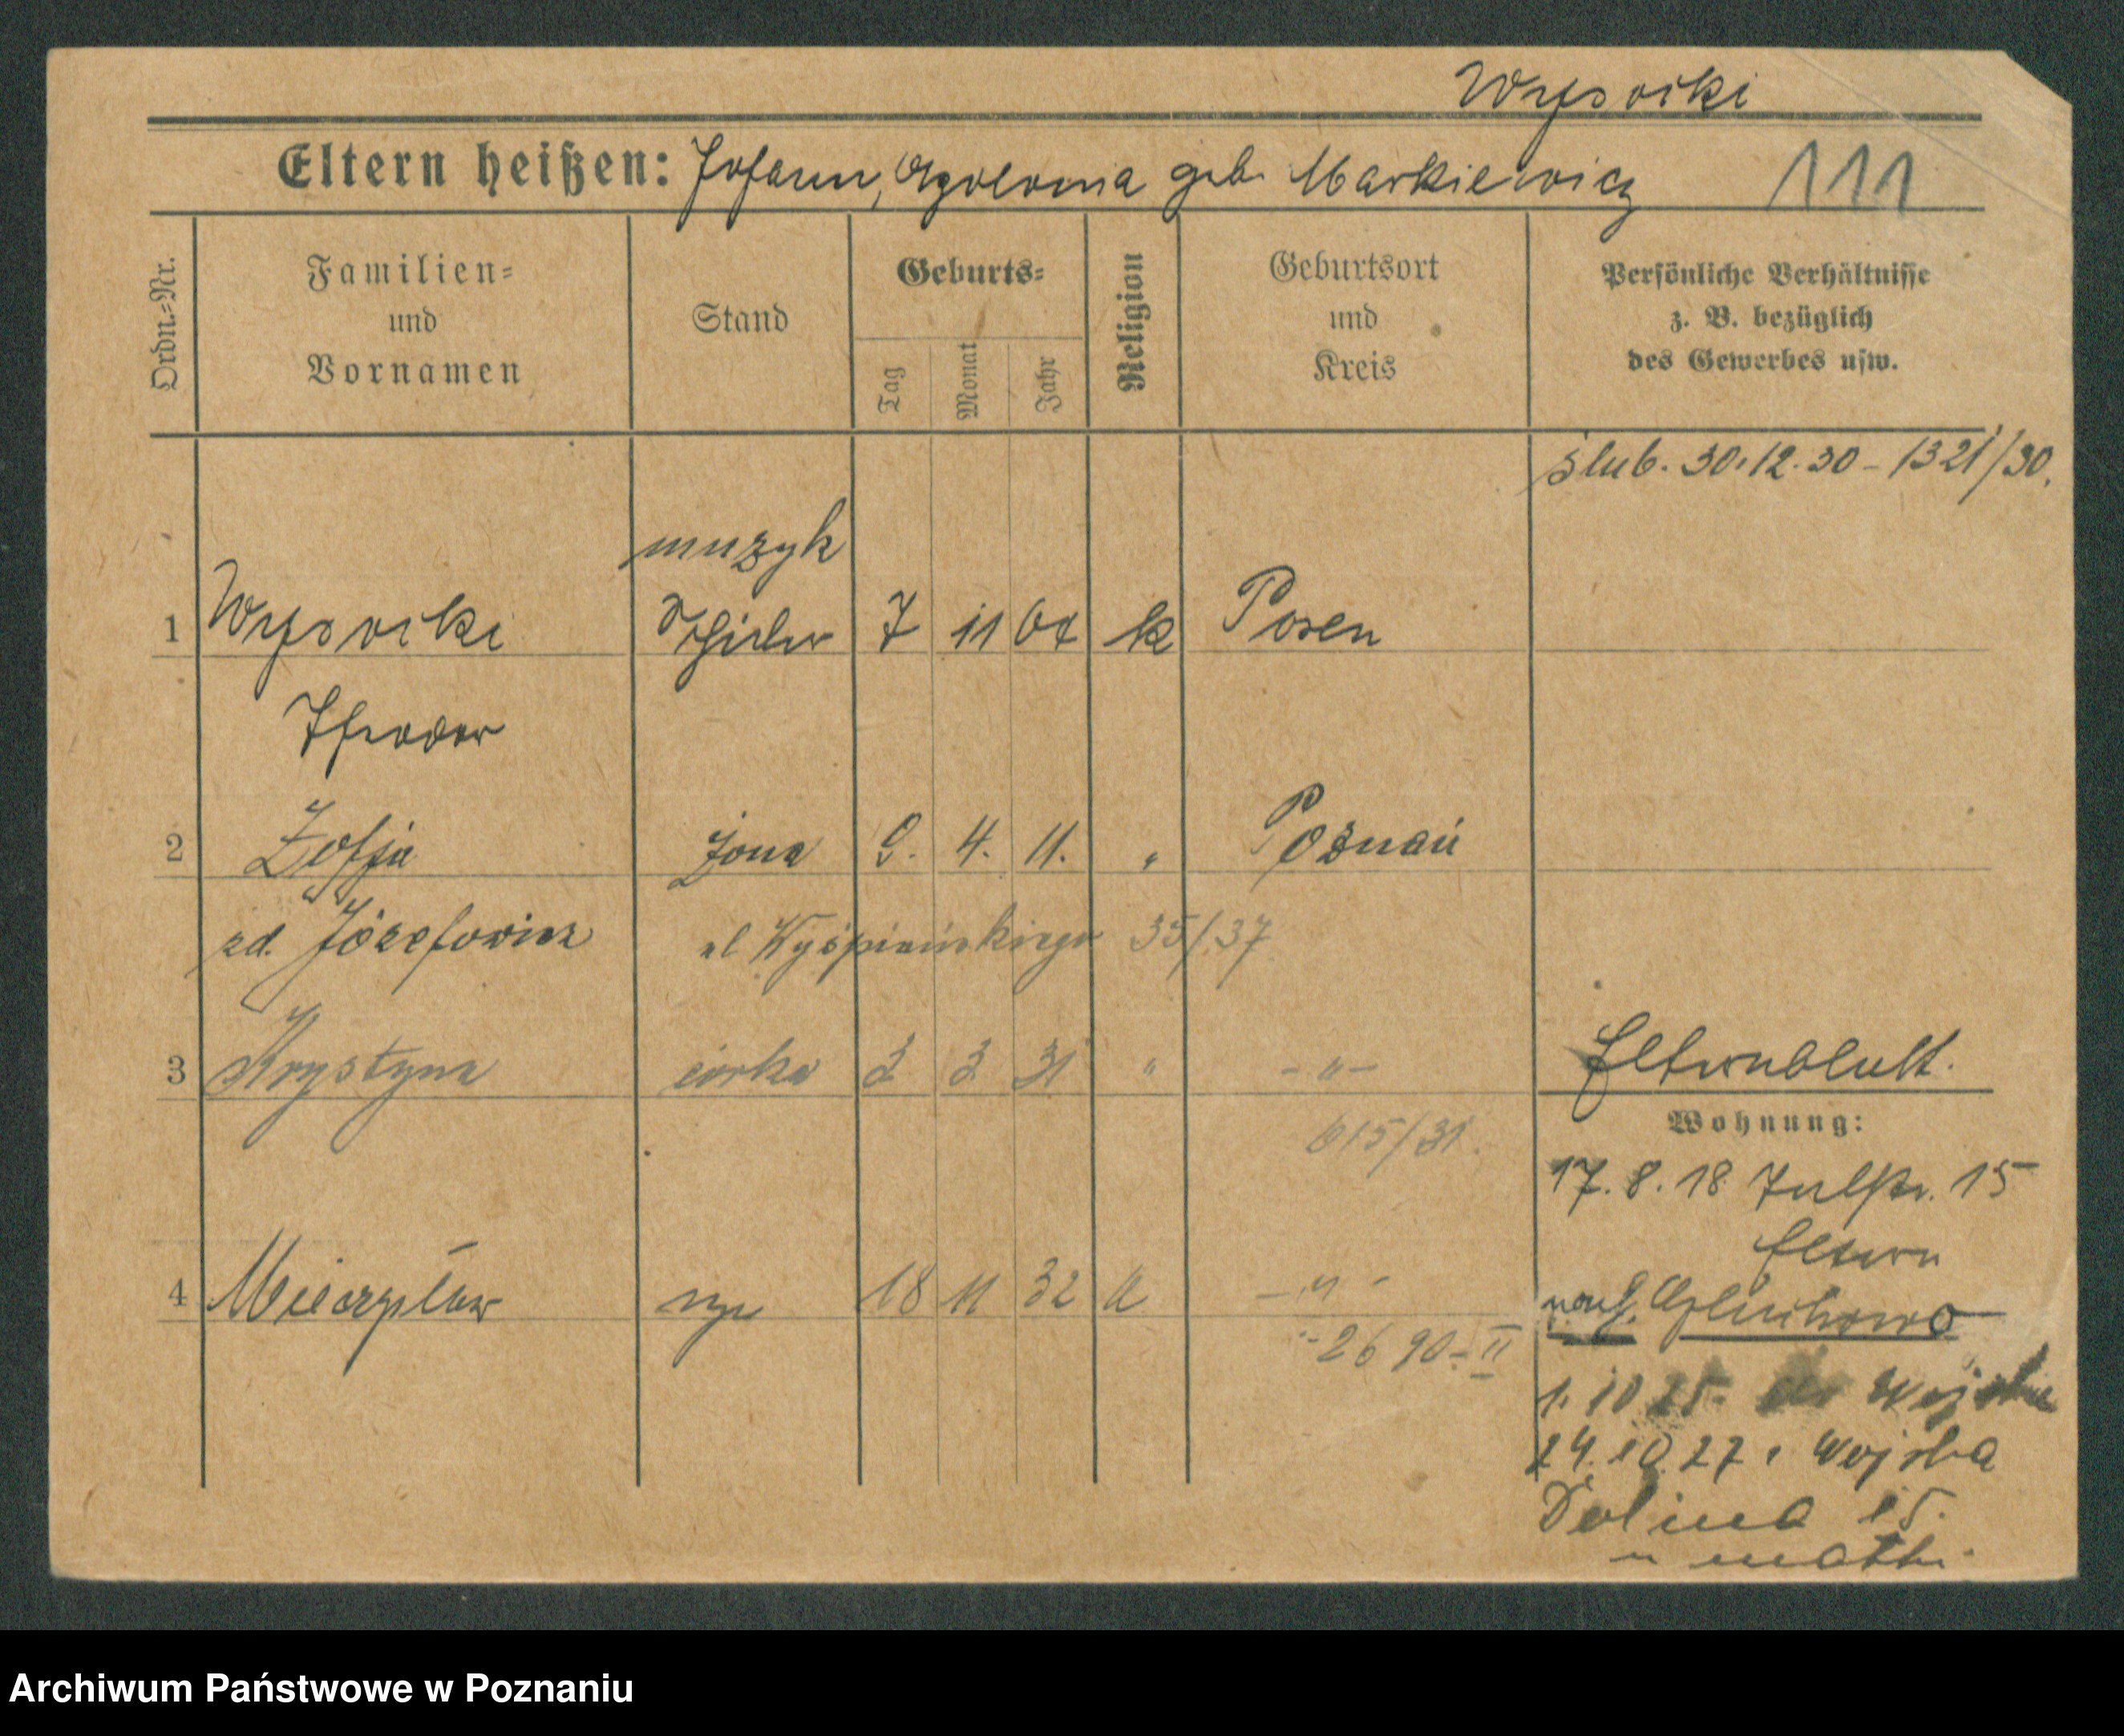 Wysocki
Eltern heißen: Johann, Apolonia geb. Markiewicz 111
Ordn.-Nr.
Familien-
und
Vornamen
Stand
Geburts-
Tag
Monat
Jahr
Religion
Geburtsort
und
Kreis
Persönliche Verhältnisse
z. B. bezüglich
des Gewerbes usw.
ślub. 30.12.30 - 1321/30.
muzyk
1 Wysocki Schüler 7 11 04 k Posen
Theodor
2 Zofja żona 9. 4. 11. " Poznań
zd. Józefowicz ul Wyśpiańskiego 35/37
3 Krystyna córka 2 3 31 " - " -
615/31.
Elternblatt.
Wohnung:
17. 8. 18 15
Eltern
4 Mieczysław syn 18 11 32 " - " -
2690 - II
1. 10 25 do Wojska
24. 10. 27 z Wojska
Dolina 15.
u matki
Archiwum Państwowe w Poznaniu